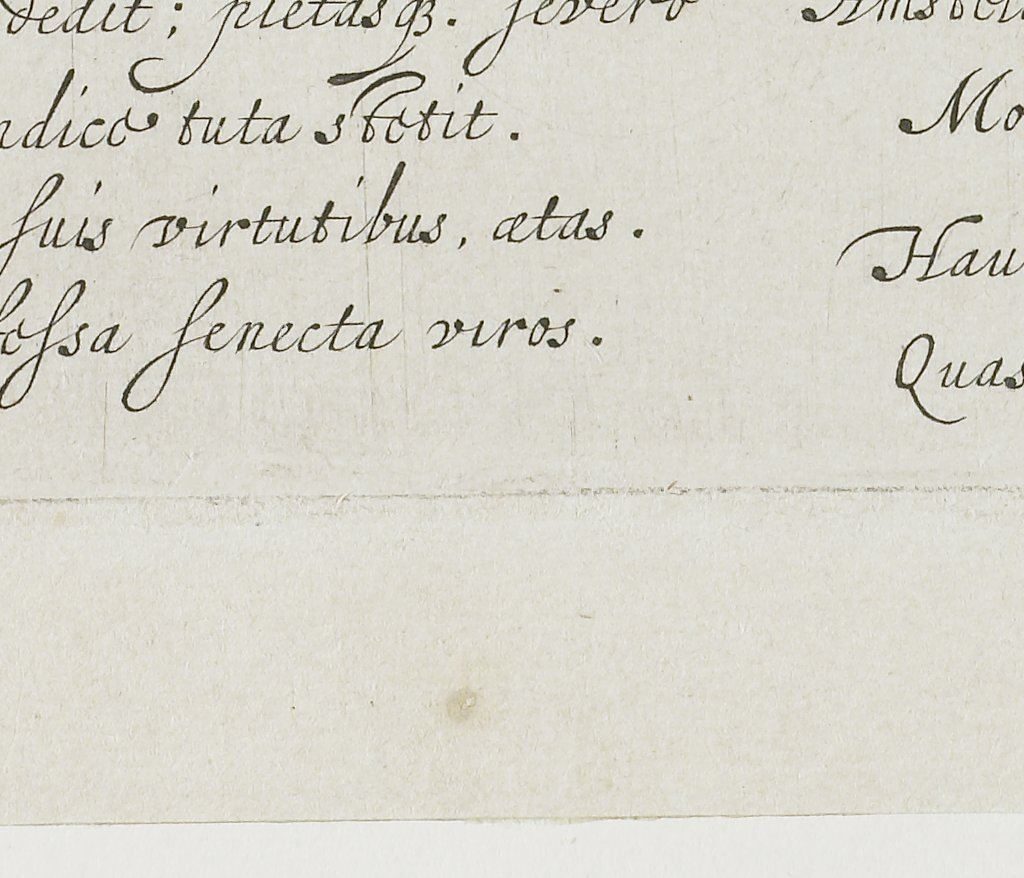 dedit; pietasqꝫ. severo
ndice tuta stetit.
suis virtutibus, ætas.
fessa senecta viros.
Amstel
Mo
Hau
Quas